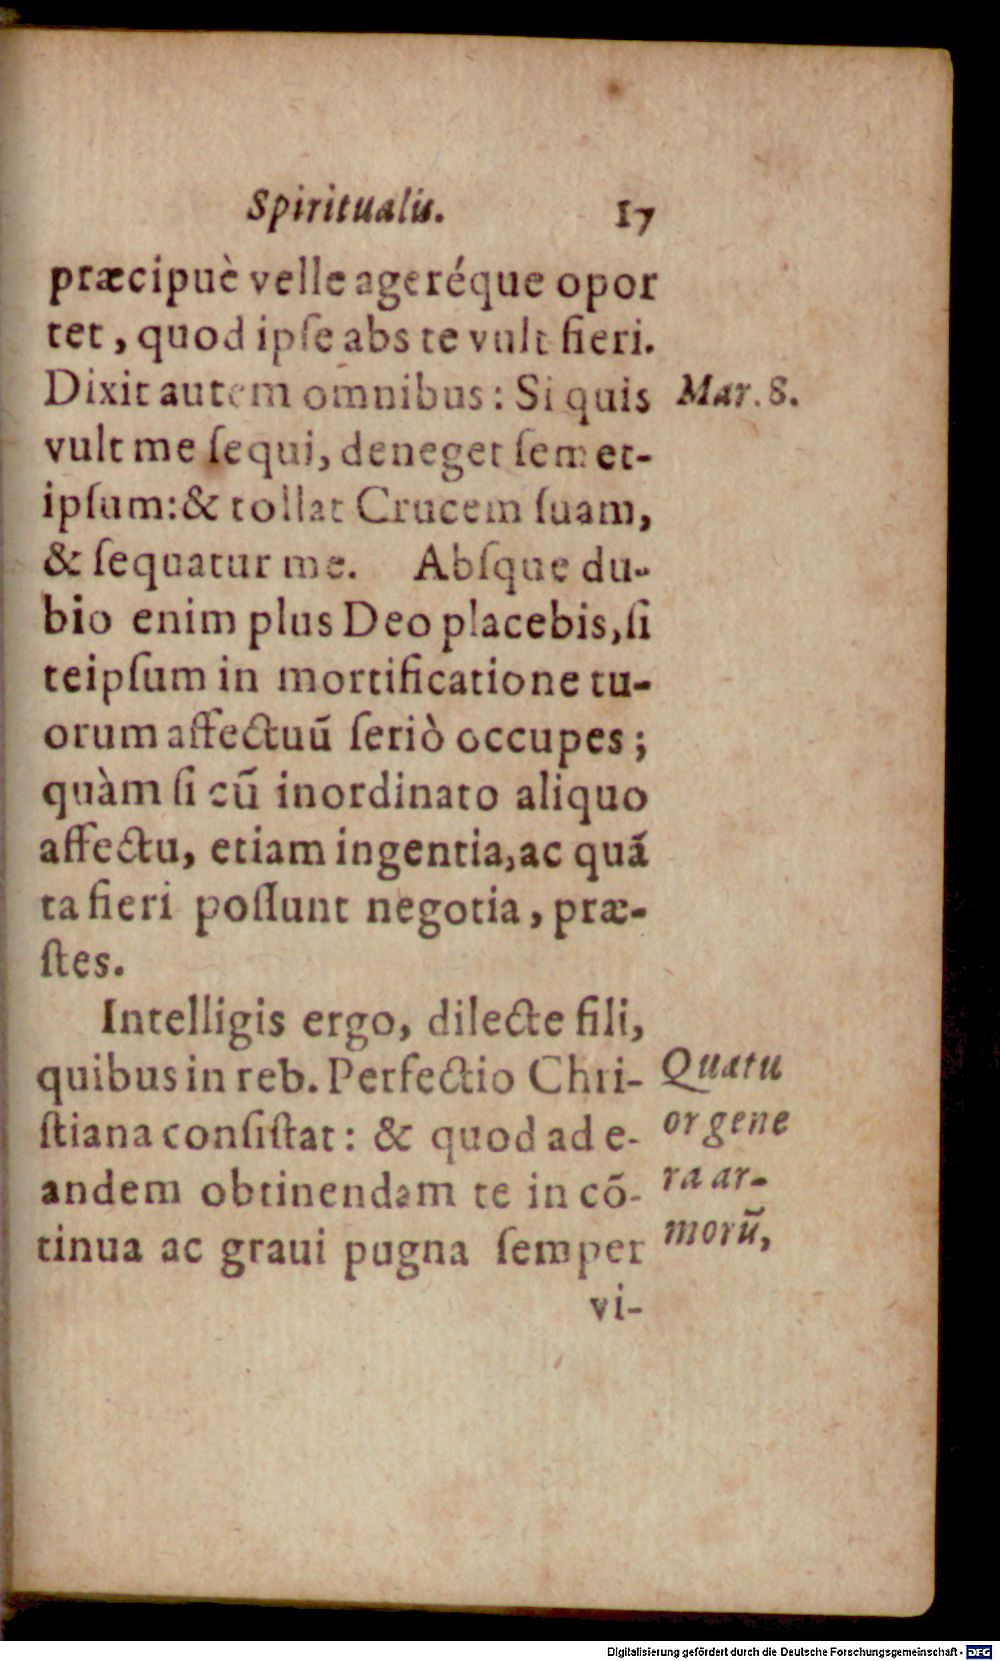 Spiritualis. 17
præcipuè velle ageréque opor
tet, quod ipſe abs te vult fieri.
Dixit autem omnibus: Si quis
Mar. 8.
vult me ſequi, deneget ſemet-
ipſum: & tollat Crucem ſuam,
& ſequatur me. Abſque du-
bio enim plus Deo placebis, ſi
teipſum in mortificatione tu-
orum affectuū ſeriò occupes;
quàm ſi cū inordinato aliquo
affectu, etiam ingentia, ac quā
ta fieri poſſunt negotia, præ-
ſtes.
Intelligis ergo, dilecte fili,
quibus in reb. Perfectio Chri-
ſtiana conſiſtat: & quod ad e-
andem obtinendam te in cō-
tinua ac graui pugna ſemper
Quatu
or gene
ra ar-
morū,
vi-
Digitalisierung gefördert durch die Deutsche Forschungsgemeinschaft - DFG